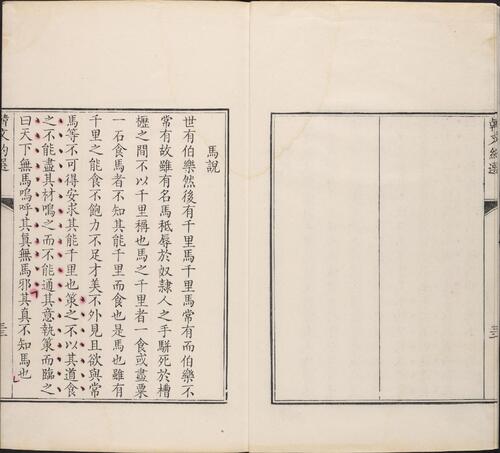 馬說
世有伯樂然後有千里馬千里馬常有而伯樂不
常有故雖有名馬秪辱於奴隸人之手駢死於槽
櫪之間不以千里稱也馬之千里者一食或盡粟
一石食馬者不知其能千里而食也是馬也雖有
千里之能食不飽力不足才美不外見且欲與常
馬等不可得安求其能千里也策之不以其道食
之不能盡其材鳴之而不能通其意執策而臨之
曰天下無馬嗚呼其真無馬邪其真不知馬也